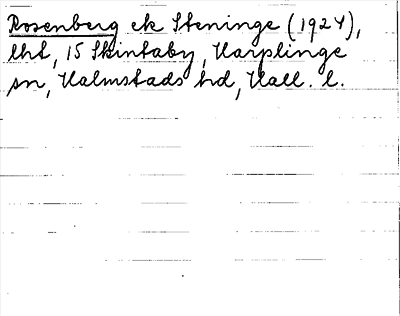 Rosenberg ek Steninge (1924),
lht, 15 Skintaby, Harplinge
sn, Halmstads hd, Hall. l.